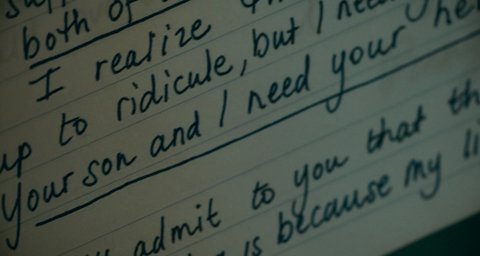 both of
I realize
up to ridicule, but I need
your son and I need your he
admit to you that th
is because my li